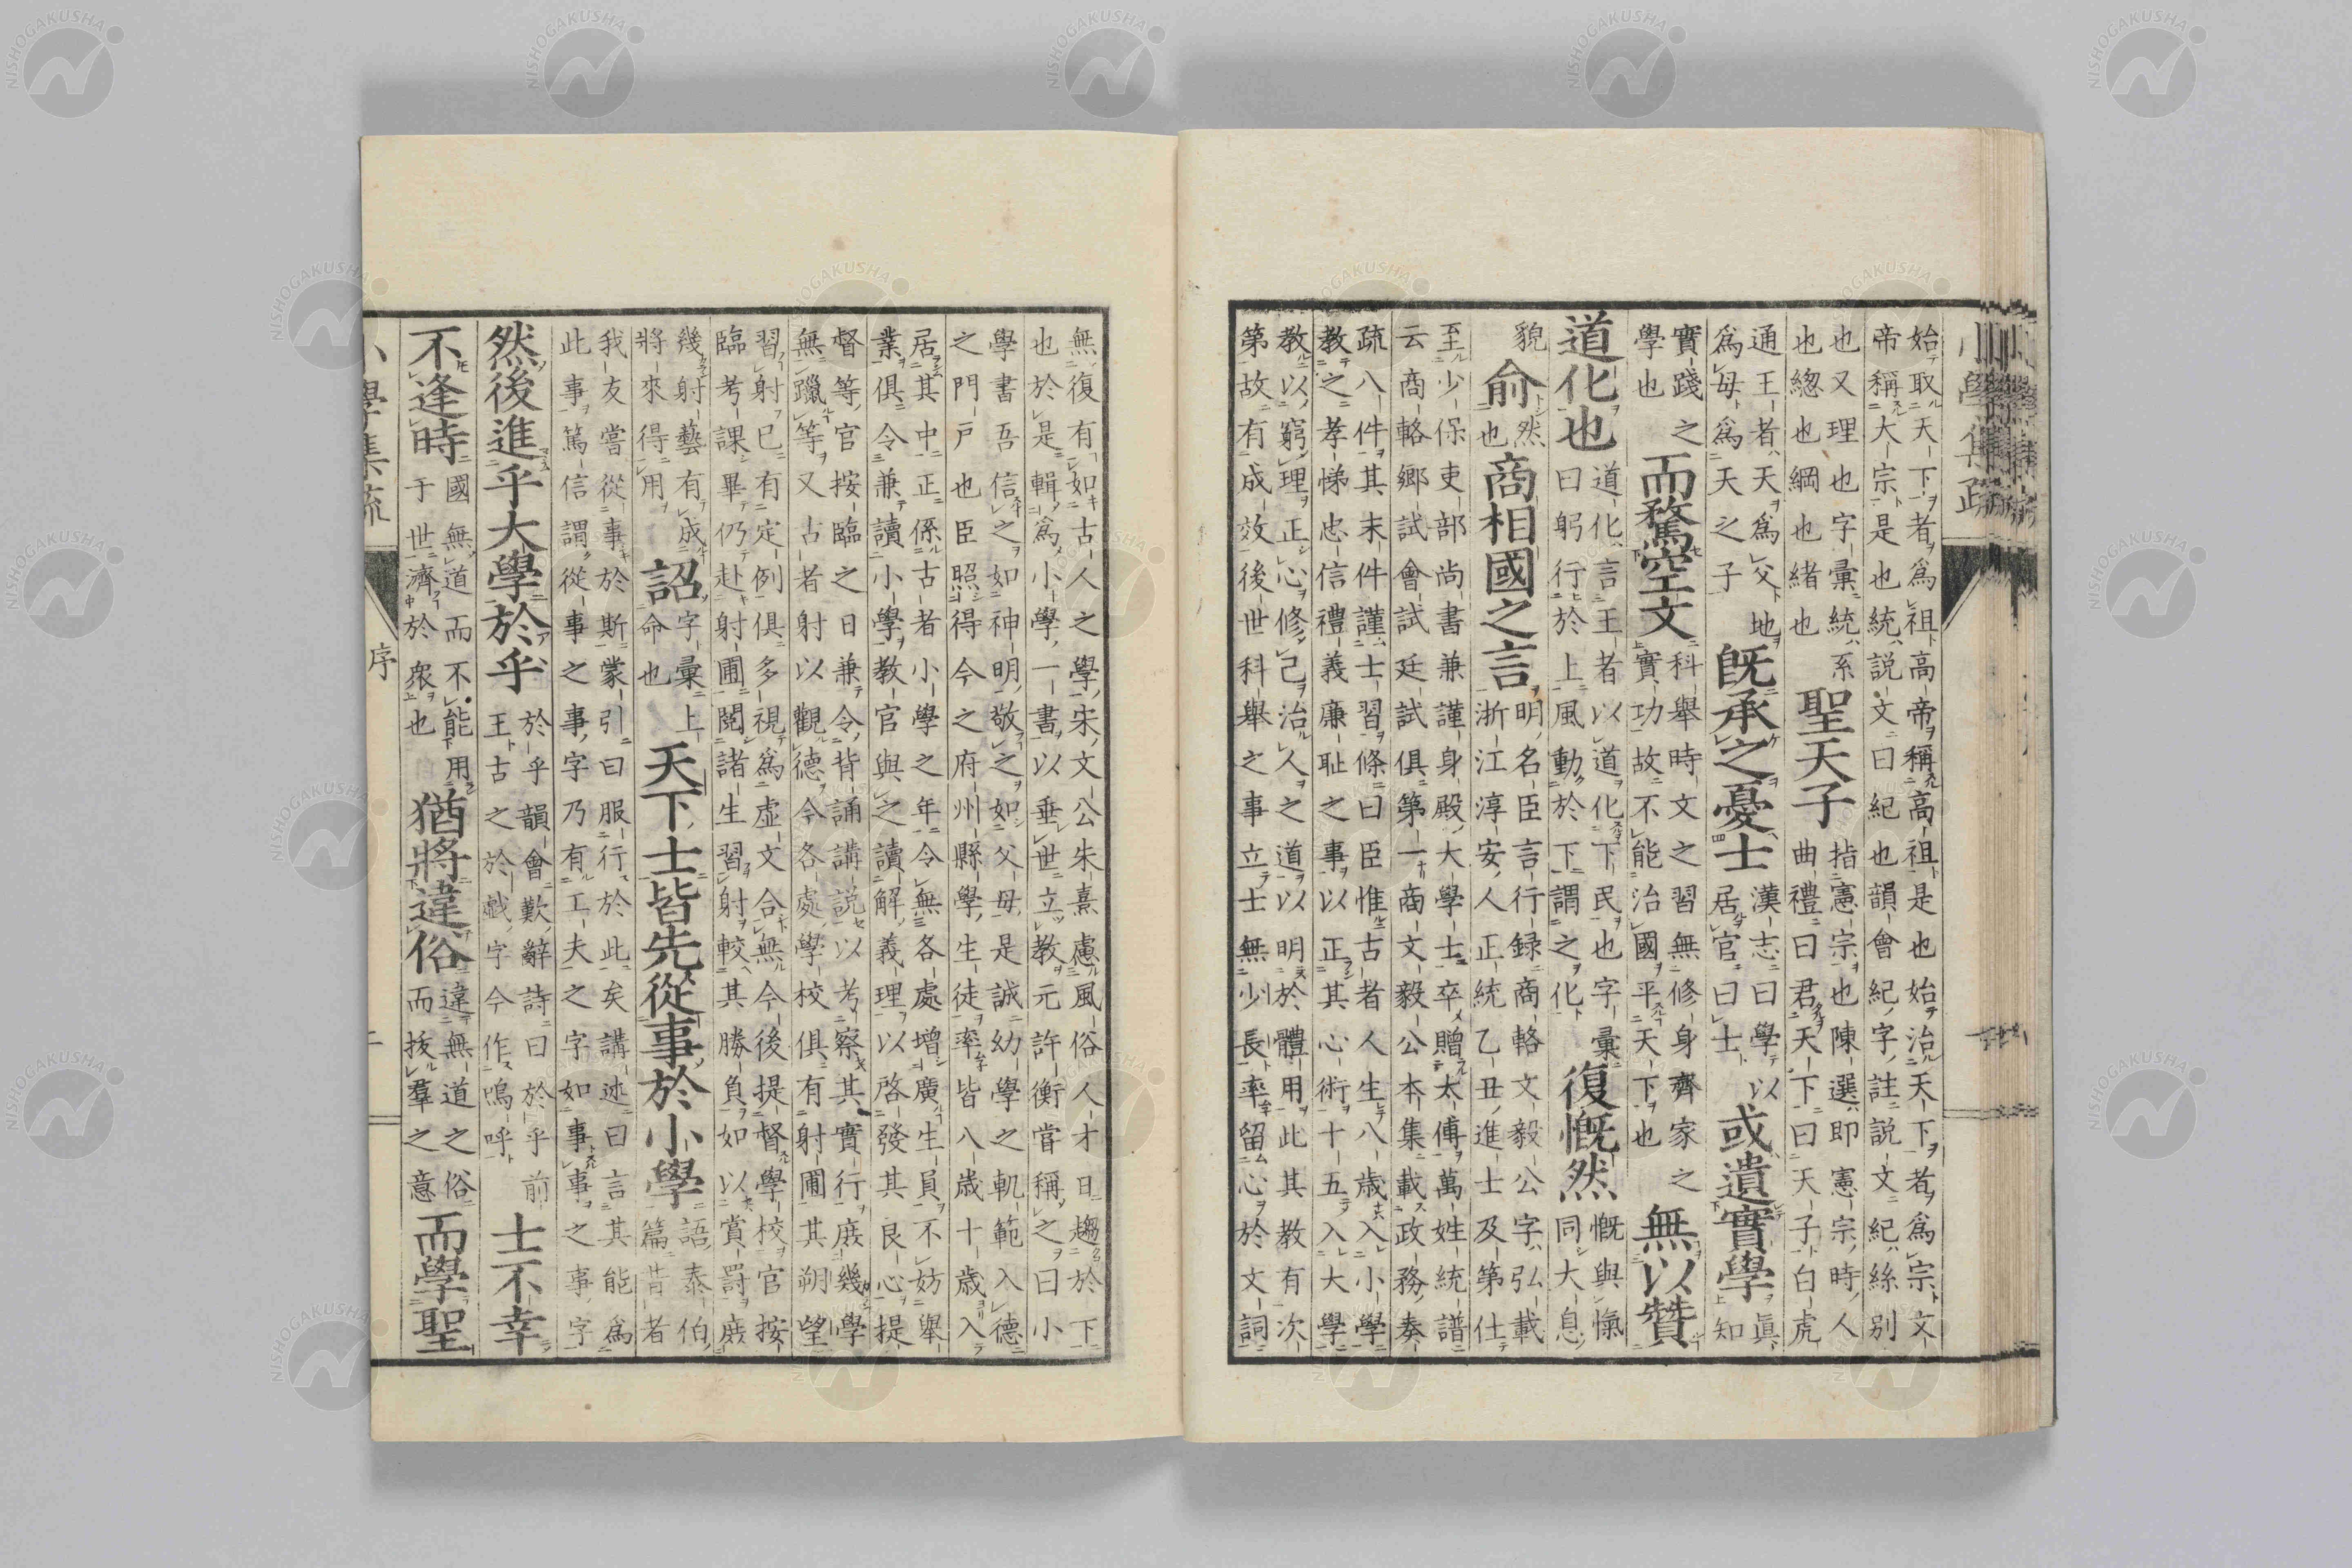 小學集疏
始取天下者爲祖高帝稱高祖是也始治天下者爲宗文
帝稱大宗是也統説文曰紀也韻會紀字註説文紀絲別
也又理也字彙統系
也緫也綱也緒也
聖天子
指憲宗也陳選即憲宗時人
曲禮曰君天下曰天子白虎
通王者天爲父地
爲母爲天之子
既承之憂士
漢志曰學以
居官曰士
或遺實學
眞
知
實踐之
學也
而騖空文
科舉時文之習無修身齊家之
實功故不能治國平天下也
無以贊
道化也
道化言王者以道化下民也字彙
曰躬行於上風動於下謂之化
復慨然
慨與愾
同大息
貌
俞
然
也
商相國之言
明名臣言行録商輅文毅公字弘載
浙江淳安人正統乙丑進士及第仕
至少保吏部尚書兼謹身殿大學士卒贈太傅萬姓統譜
云商輅鄉試會試廷試俱第一商文毅公本集載政務奏
疏八件其末件謹士習條曰臣惟古者人生八歳入小學
教之孝悌忠信禮義廉耻之事以正其心術十五入大學
教以窮理正心修己治人之道以明於體用此其教有次
第故有成效後世科舉之事立士無少長率留心於文詞
無復有如古人之學宋文公朱熹慮風俗人才日趨於下
也於是輯爲小學一書以垂世立教元許衡嘗稱之曰小
學書吾信之如神明敬之如父母是誠幼學之軌範入德
之門戸也臣照得今之府州縣學生徒率皆八歳十歳入
居其中正係古者小學之年令無各處增廣生員不妨舉
業俱令兼讀小學教官與之讀解義理以啓發其良心提
督等官按臨之日兼令背誦講説以考察其實行庶幾學
無躐等又古者射以觀德今各處學校俱有射圃其朔望
習射已有定例俱多視爲虚文合無今後提督學校官按
臨考課畢仍赴射圃閲諸生習射較其勝負如以賞罰庶
幾射藝有成
將來得用
詔
字彙上
命也
天下士皆先從事於小學
語泰伯
篇昔者
我友嘗從事於斯蒙引曰服行於此矣講述曰言其能爲
此事篤信謂從事之事字乃有工夫之字如事事之事字
然後進乎大學於乎
於乎韻會歎辭詩曰於乎前
王古之於戲字今作嗚呼
士不幸
不逢時
國無道而不能用
于世濟於衆也
猶將違俗
違無道之俗
而拔羣之意
而學聖
小學集疏
序